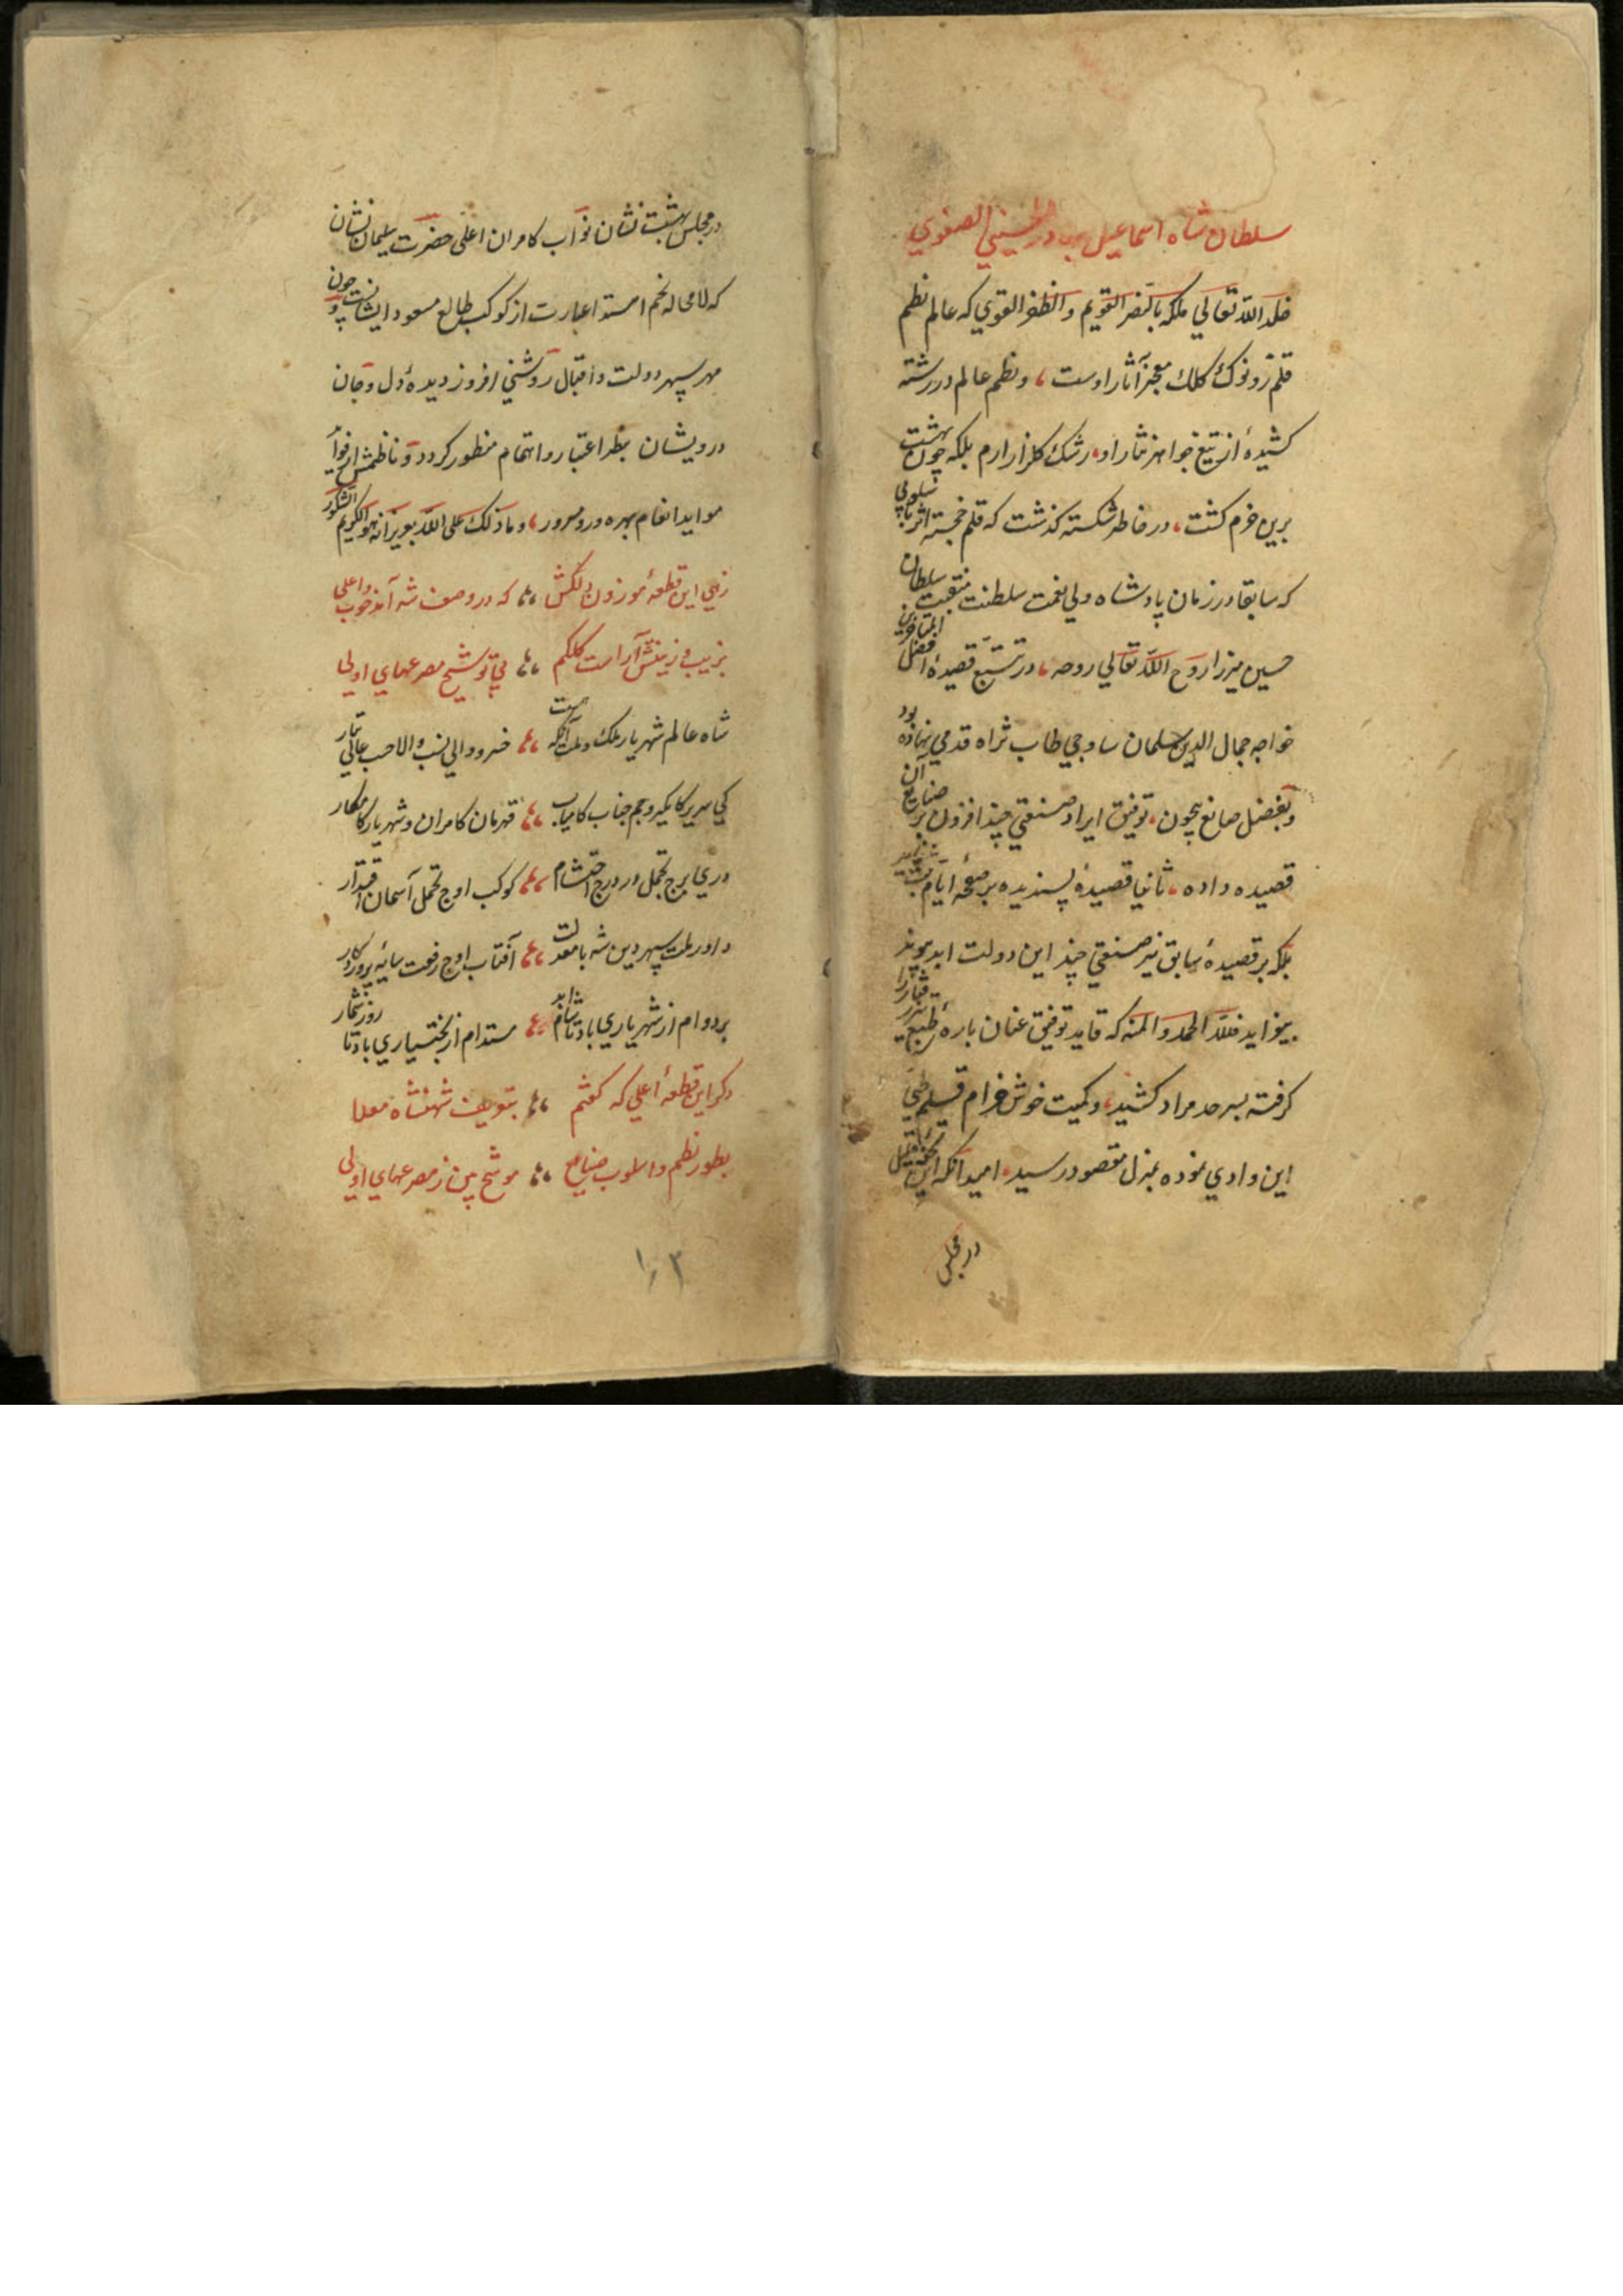 سلطان شاه اسماعیل بهادر الحسینی الصفوي
خلد الله تعالي ملکه بالنصر القویم والظفر القوي که عالم نظم
قلم زو نوک کلک معجز آثار اوست، ونظم عالم در رشته
کشیدۀ از تیغ جواهر نثار او، رشک گلزار ارم بلکه چون بهشت
برین خرم گشت، در خاطر شکسته گذشت که قلم خجسته اثر
که سابقا در زمان پادشاه ولي نعمت سلطنت منقبت سلطان
حسین میرزا روح الله تعالي روحه، در تتبع قصیدۀ افضل المتاخرین
خواجه جمال الدین سلمان ساوجي طاب ثراه قدمي نهاده بود
وبفضل صانع بیچون، توفیق ایراد صنعتي چند افزون بر صنایع آن
قصیده داده، ثانیا قصیدۀ پسندیده بر صفحۀ ایام
بلکه بر قصیدۀ سابق نیز صنعتي چند این دولت ابد پیوند
بیفزاید فلله الحمد والمنه که قاید توفیق عنان بارۀ طبع
گرفته بسرحد مراد کشید، وکمیت خوش خرام قلم طي
این وادي نموده بمنزل مقصود رسید، امید آنکه این تحفۀ
در مجلس
در مجلس بهشت نشان نواب کامران اعلی حضرت سلیمان نشان
که لامحاله نجم استد اعبارت از کوکب طالع مسعود ایشانست چون
مهر سپهر دولت واقبال روشني افروز دیدۀ دل وجان
درویشان بنظر اعتبار واهتمام منظور گردد وناظمش از فوائد
مواید انعام بهره ور ومسرور، وما ذلک علی الله بعزیز انه هو الکریم الشکور
زهي این قطعۀ موزون دلکش ،، که در وصف شه آمد خوب واعلی
بزیب وزینتش آراست کلکم ،، پي توشیح مصرعهاي اولی
شاه عالم شهریار ملک وملت آنکه هست ،، خسرو والي نسب والاحسب عالي تبار
کي سریر کایکیر وجم جناب کامیاب ،، قهرمان کامران وشهریار کامکار
دري برج تجمل در درج احتشام ،، کوکب اوج تحمل آسمان اقتدار
داور ملت سپهر دین شه با معدلت ،، آفتاب اوج رفعت سایۀ پروردگار
بر دوام از شهریاري باد تا شام ابد ،، مستدام از بختیاري باد تا روز شمار
دگر این قطعۀ اعلی که گفتم ،، بتعریف شهنشاه معلا
بطور نظم واسلوب صنایع ،، موشح بین ز مصرعهاي اولی